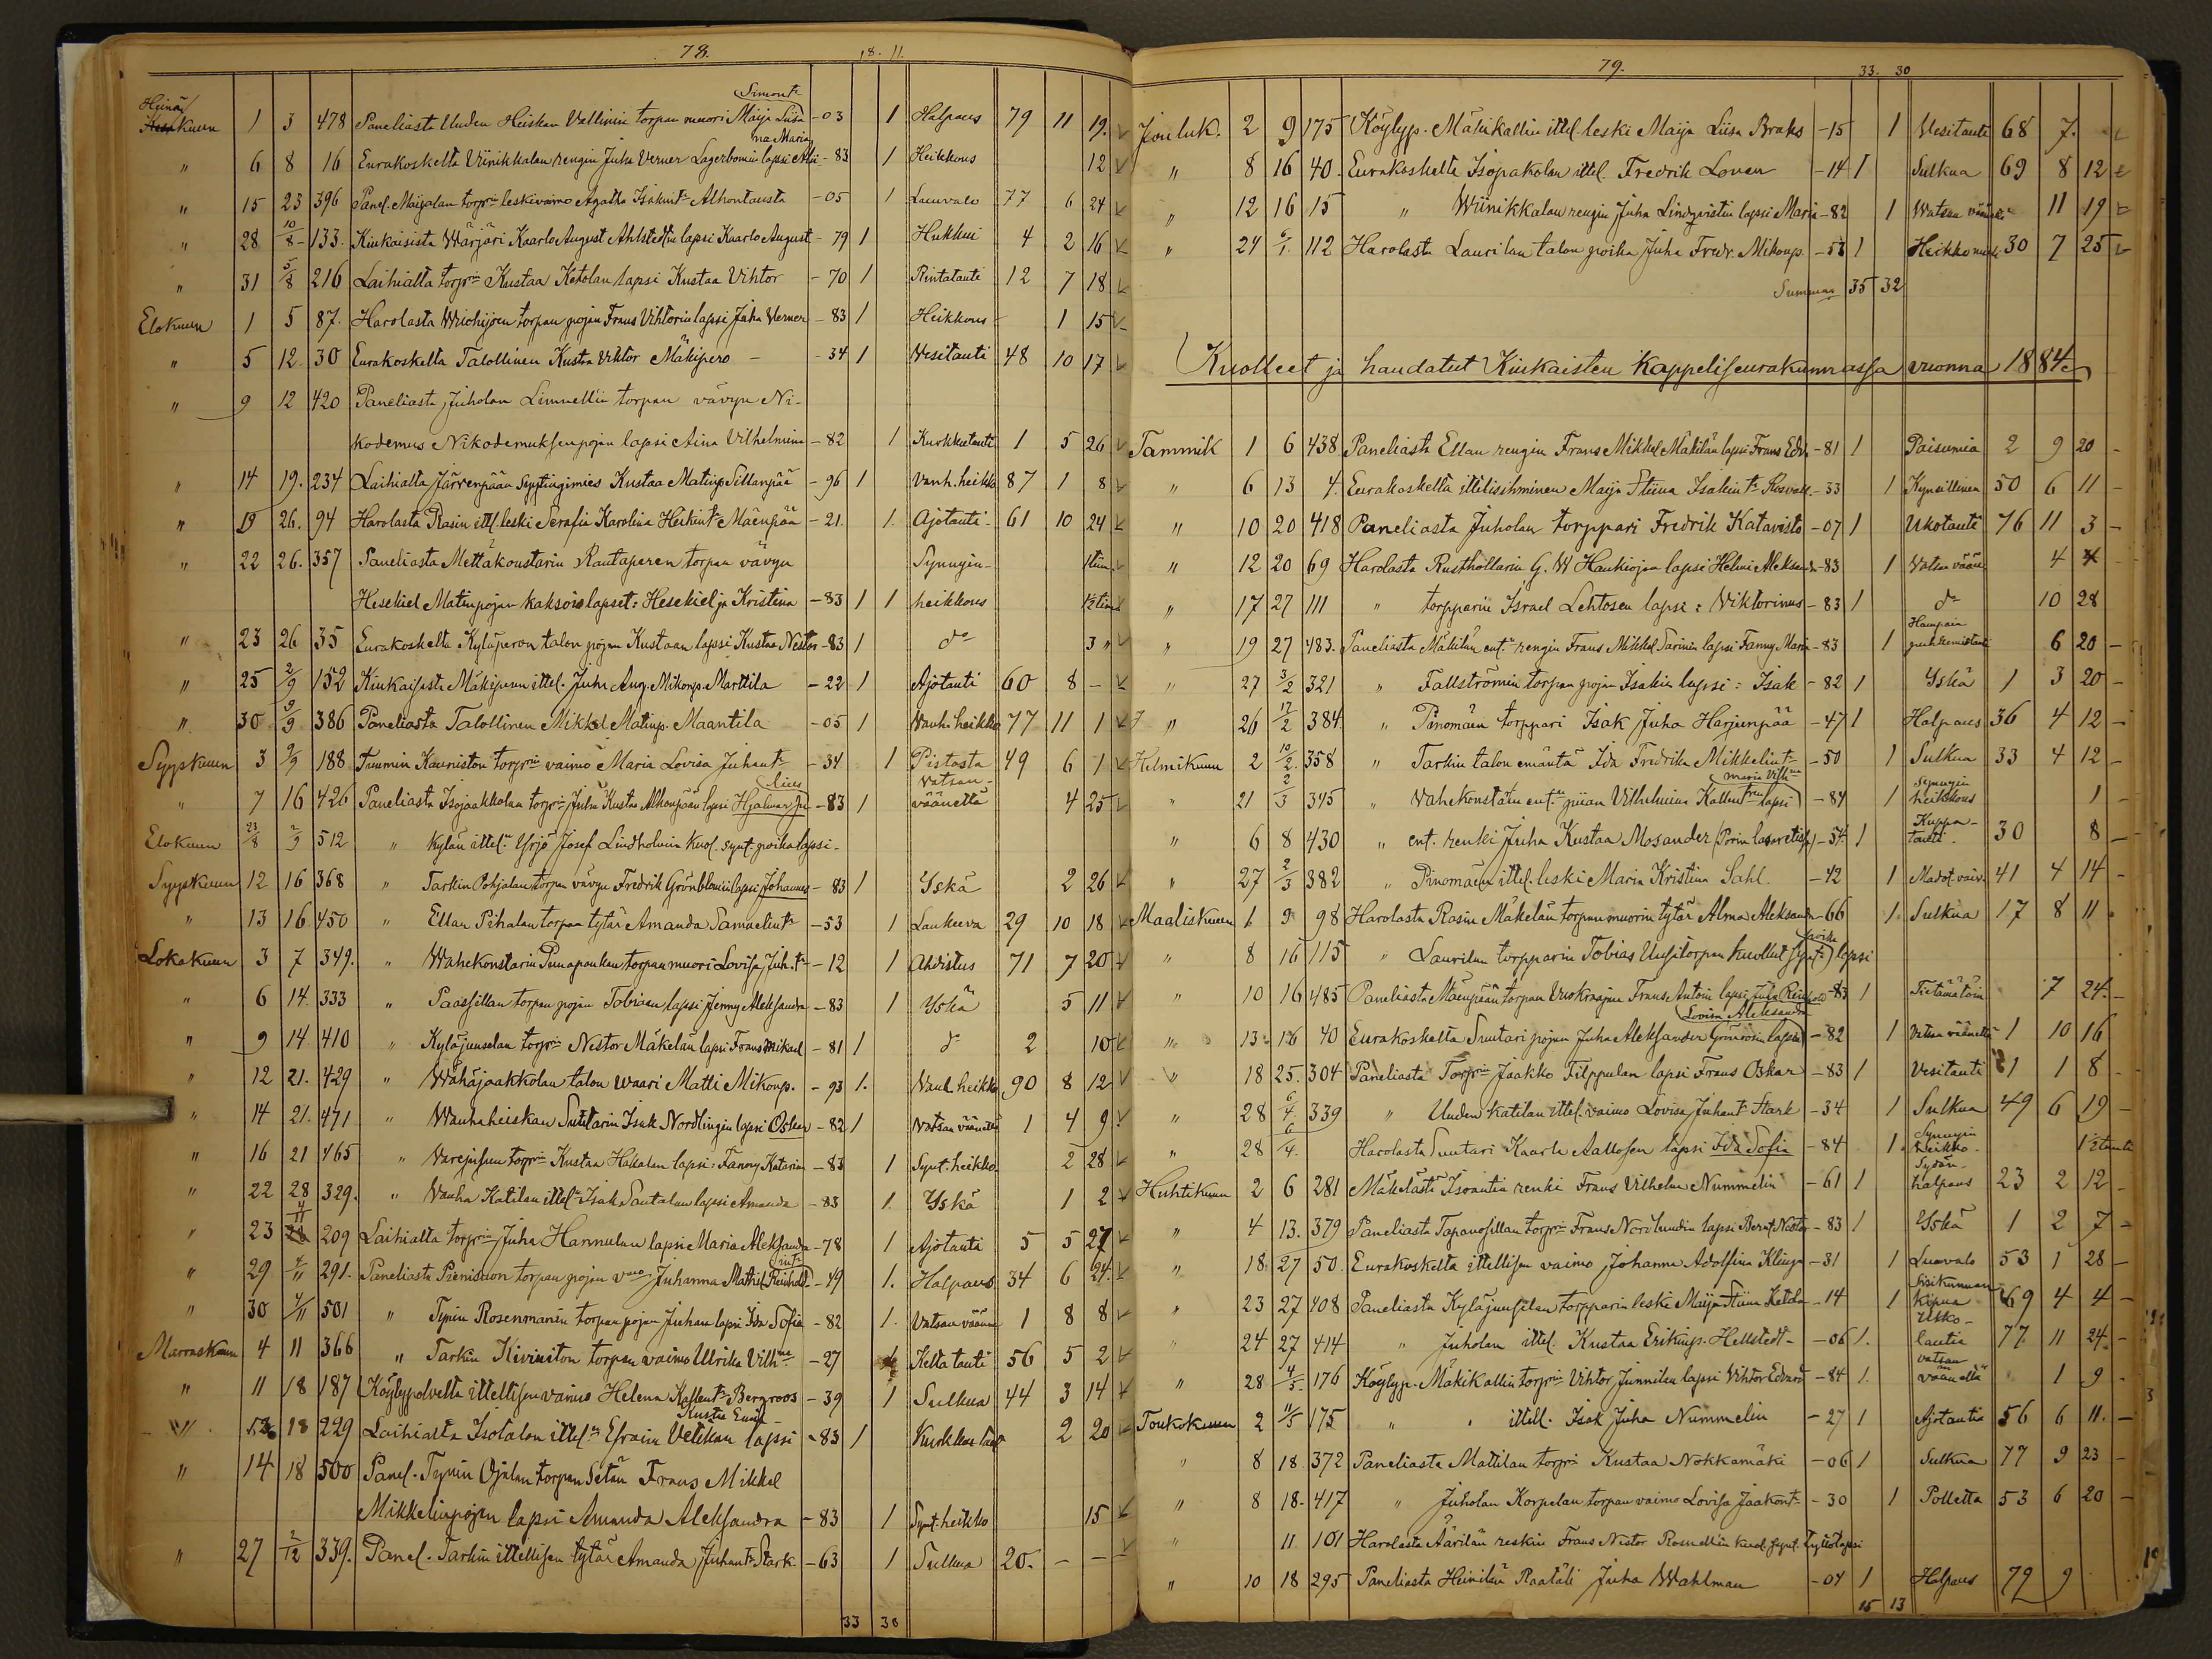 78.
18. 11.
Simont.
Heinäkuun 1 3 478 Paneliasta Uuden Heiskan Vallinin torpan muori Maija Liisa -03 1 Halpaus 79 11 19.
na Maria
" 6 8 16 Eurakoskelta Viinikkalan rengin Juha Verner Lagerbomin lapsi -83 1 Heikkous 12
" 15 23 396 Panel. Maijalan torprin leskivaimo Agatha Isakint. Alhontausta -05 1 Luuvalo 77 6 24
" 28 10/8 133. Kiukaisista Värjäri Kaarlo August Ahlstedtin lapsi Kaarlo August -79 1 Hukkui 4 2 16
" 31 5/8 216 Laihialta torprin Kustaa Ketolan lapsi Kustaa Vihtor -70 1 Rintatauti 12 7 18
Elokuun 1 5 87. Harolasta torpan pojan Frans Vihtorin lapsi Juha Verner -83 1 Heikkous 1 15
" 5 12 30 Eurakoskelta Talollinen Kusta Viktor Mäkipero -34 1 Vesitauti 48 10 17
" 9 12 420 Paneliasta Juholan Limnellin torpan vävyn Ni-
kodemus Nikodemuksenpojan lapsi Aina Vilhelmiina -82 1 Kurkkutauti 1 5 26
" 14 19. 234 Laihialta Järvenpään Syytingimies Kustaa Matinp. Sillanpää -96 1 Vanh. heikko 87 1 8
" 19 26. 94 Harolasta Rasin ittl. leski Serafia Karolina Heikint. Mäenpää -21. 1. Ajotauti 61 10 24
" 22 26. 357 Paneliasta Mettäkoustarin Rautaperen torpan vävyn Synnyin-
Hesekiel Matinpojan kaksoislapset: Hesekiel ja Kristiina -83 1 1 heikkous
" 23 26 35 Eurakoskelta Kyläperon talon pojan Kustaan lapsi Kustaa Nestor -83 1 do 3 "
" 25 2/9 152 Kiukaisista Mäkipuun ittel. Juha Aug. Mikonp. Marttila -22 1 Ajotauti 60 8 -
" 30 9/9 386 Paneliasta Talollinen Mikkel Matinp. Maantila -05 1 Vanh. heikko 77 11 1
Syyskuun 3 9/9 188 Tuumin Kauniston torprin vaimo Maria Lovisa Juhant. -34 1 Pistosta 49 6 1
" 7 16 426 Paneliasta Isojaakkolan torprin Juha Kustaa Alhonpään lapsi Hjalmar -83 1 Vatsan-väänettä 4 25
Elokuun 23/8 2/9 512 " Kylän ittel. Yrjö Josef Lindholmin kuol. synt. poikalapsi-
Syyskuun 12 16 368 " Tarkin Pohjalan torpan vävyn Fredrik Grönblomin lapsi Johannes -83 1 Yskä 2 26
" 13 16 450 " Ellan Pihalan torpan tytär Amanda Samuelint. -53 1 Laukeeva 29 10 18
Lokakuun 3 7 349. " Wahekonstarin Punapaukan torpan muori Lovisa Juh.t. -12 1 Ahdistus 71 7 20
" 6 14. 333 " Paassillan torpan pojan Tobiaan lapsi Jenny Aleksandra -83 1 Yskä 5 11
" 9 14. 410 " Kyläjuuselan torprin Nestor Mäkelän lapsi Frans Mikael -81 1 do 2 10
" 12 21. 429 " Wähäjaakkolan talon vaari Matti Mikonp. -93 1. Vanh. heikko 90 8 12
" 14 21. 471 " Wanhaheiskan Suutarin Isak Nordlingin lapsi Oskar -82 1 Vatsan väänettä 1 4 9
" 16 21 465 " torprin Kustaa Hakalan lapsi: Fanny Katarina -83 1 Synt. heikko 2 28
" 22 28 329. " Vanha Katilan ittel. Isak Santalan lapsi Amanda -83 1. Yskä 1 2
" 23 4/11 209 Laihialta torprin Juha Hannulan lapsi Maria Aleksandra -78 1 Ajotauti 5 5 27
" 29 4/11 291. Paneliasta torpan pojan vmo Juhanna Mathil. Reinhold -49 1. Halpaus 34 6 24.
" 30 4/11 501 " Typin Rosenmanin torpan pojan Juhan lapsi Ida Sofia -82 1. Vatsan väänn 1 8 8
Marraskuun 4 11 366 " Tarkin Kiviniston torpan vaimo Ulrika Vilh. -27 1 Kelta tauti 56 5 2
" 11 18 187 Köylypolvelta ittellisen vaimo Helena Kallent. Bergroos -39 1 Sulkua 44 3 14
" 13. 18 229 Laihialta Isotalon ittel. Efraim Vetikan lapsi Kustaa Emil -83 1 Kurkku taut 2 20
" 14 18 500 Panel. Typin Ojalan torpan Setän Frans Mikkel
Mikkelinpojan lapsi Amanda Aleksandra -83 1 Synt. heikko 15
" 27 2/12 339. Panel. Tarkin ittellisen tytär Amanda Juhant. Stark -63 1 Sulkua 20. - -
33 30
79.
33. 30
Jouluk. 2 9 175 Köylyp. Mäkikallin ittel. leski Maija Liisa Braks -15 1 Vesitauti 68 7.
" 8 16 40. Eurakoskelta Isopakolan ittel. Fredrik Loven -14 1 Sulkua 69 8 12
" 12 16 15 " Wiinikkalan rengin Juha Lindqvistin lapsi Maria -82 1 Watsan väänette 11 19
" 24 6/1. 112 Harolasta Laurilan talon poika Juha Fredr. Mikonp. -53 1 Heikkomieli 30 7 25
Summa 35 32
Kuolleet ja haudatut Kiukaisten Kappeliseurakunnassa vuonna 1884.
Tammik 1 6 438 Paneliasta Ellan rengin Frans Mikkel Mäkilän lapsi Frans Edv. -81 1 Paisumia 2 9 20 -
" 6 13 4. Eurakoskelta ittellisihminen Maija Stiina Isakint. Rosvall -33 1 Kynsillinen 50 6 11 -
" 10 20 418 Paneliasta Juholan torppari Fredrik Katavisto -07 1 Ukotauti 76 11 3 -
" 12 20 69 Harolasta Rusthollarin G. W Haukiojan lapsi Helmi Aleksandra -83 1 Watsan vääne 4 4 -
" 17 27 111 " torpparin Israel Lehtosen lapsi: Viktorinus -83 1 do 10 28
" 19 27 483. Paneliasta Mäkilän ent. rengin Frans Mikkel Sarinin lapsi Fanny Maria -83 1 Hampain puhkeemistauti 6 20 -
" 27 3/2 321 " Fallströmin torpan pojan Isakin lapsi: Isak -82 1 Yskä 1 3 20 -
" 26 17/2 384. " Pinomäen torppari Isak Juha Harjunpää -47 1 Halpaus 36 4 12 -
Helmikuun 2 10/2 358 " Tarkin talon emäntä Ida Fredrika Mikkelint. -50 1 Sulkua 33 4 12 -
" 21 2/3 345 " Vahekonstan ent. piian Vilhelmina Kallent. lapsi Maria Vilh. -84 1 Synnyin heikkous 1 -
" 6 8 430 " ent. renki Juha Kustaa Mosander (Porin lasaretissa) -54. 1 Kuppa-tauti. 30 8 -
" 27 2/3 382 " Pinomäen ittel. leski Maria Kristiina Sahl. -42 1 Madot. vaiv. 41 4 14 -
Maaliskuun 6 9 98 Harolasta Rasin Mäkelän torpan muorin tytär Alma Aleksandra -66 1. Sulkua 17 8 11
" 8 16 115 " Laurilan torpparin Tobias Uusitorpan kuollut synt. lapsi
" 10 16 485 Paneliasta Mäenpään torpan Vuokraajan Frans Antoin lapsi Juha Reinhold -83 1 Tietämätöin 7 24. -
Lovisa Aleksandra
" 13. 16 40 Eurakoskelta Suutari pojan Juha Aleksander Grönroosin lapsi -82 1 Vatsan väänettä 1 10 16
" 18 25. 304 Paneliasta Torprin Jaakko Filppulan lapsi Frans Oskar -83 1 Vesitauti 1 1 8 -
" 28 6/4. 339 " Uuden Katilan ittel. vaimo Lovisa Juhant. Stark -34 1 Sulkua 49 6 19 -
" 28 6/4. Harolasta Suutari Kaarle Aallosen lapsi Ida Sofia -84 1. Synnyin heikko- 1/2 tunti
Huhtikuun 2 6 281 Mäkelästä Isoantin renki Frans Vilhelm Nummelin -61 1 Sydän-halpaus 23 2 12 -
" 4 13. 379 Paneliasta Tapanosillan torprin Frans Nordlundin lapsi Bernt Nestor -83 1 Yskä 1 2 7 -
" 18. 27 50. Eurakoskelta ittellisen vaimo Johanna Adolfina Klinga -31 1 Luuvalo 53 1 28 -
" 23 27 408 Paneliasta Kyläjuuselan torpparin leski Maija Stiina Ketola -14 1 Sisikunnan kipua 69 4 4 -
" 24 27 414 " Juholan ittel. Kustaa Erikinp. Hellstedt- -06 1. Ukko-tautia 77 11 24. -
" 28 4/5. 176 Köylyp. Mäkikallin torprin Vihtor Junnilan lapsi Vihtor Edvard -84 1. vatsan väänettä 1 9 -
Toukokuun 2 11/5 175 " " ittell. Isak Juha Nummelin -27 1 Ajotautia 56 6 11. -
" 8 18. 372 Paneliasta Mattilan torpri Kustaa Nokkamäki -06 1 Sulkua 77 9 23 -
" 8 18. 417 " Juholan Korpelan torpan vaimo Lovisa Jaakont. -30 1 Polletta 53 6 20 -
" 11 101 Harolasta Äärilän reskin Frans Nestor Rosnellin kuol. synt. Tyttölapsi
" 10 18 295 Paneliasta Heinilän Räätäli Juha Wahlman -04 1 Halpaus 79 9
15 13